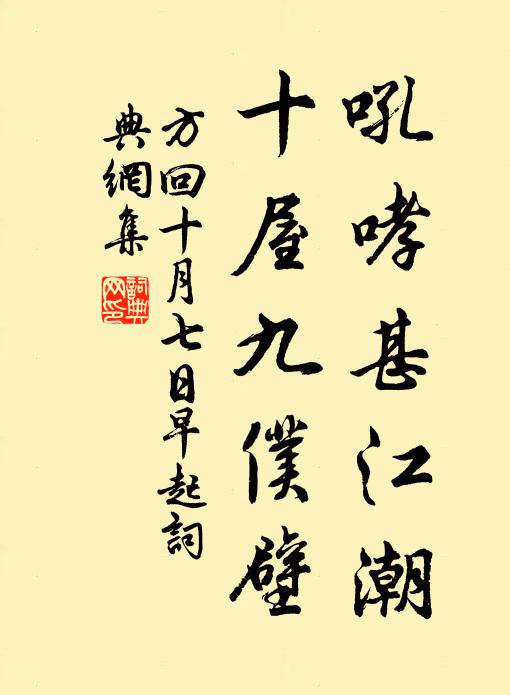 吼哮甚江潮
十屋九僕壁
方回十月七日早起詞
典網集
詞典网印